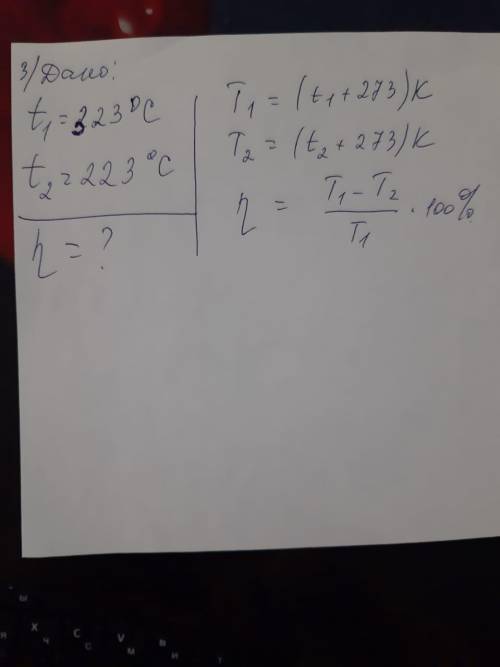 3) Дано:
t₁ = 323°C
t₂ = 223°C
η = ?
T₁ = (t₁ + 273) K
T₂ = (t₂ + 273) K
η = (T₁ − T₂) / T₁ · 100%
ы
я Ч X С C М V и в т